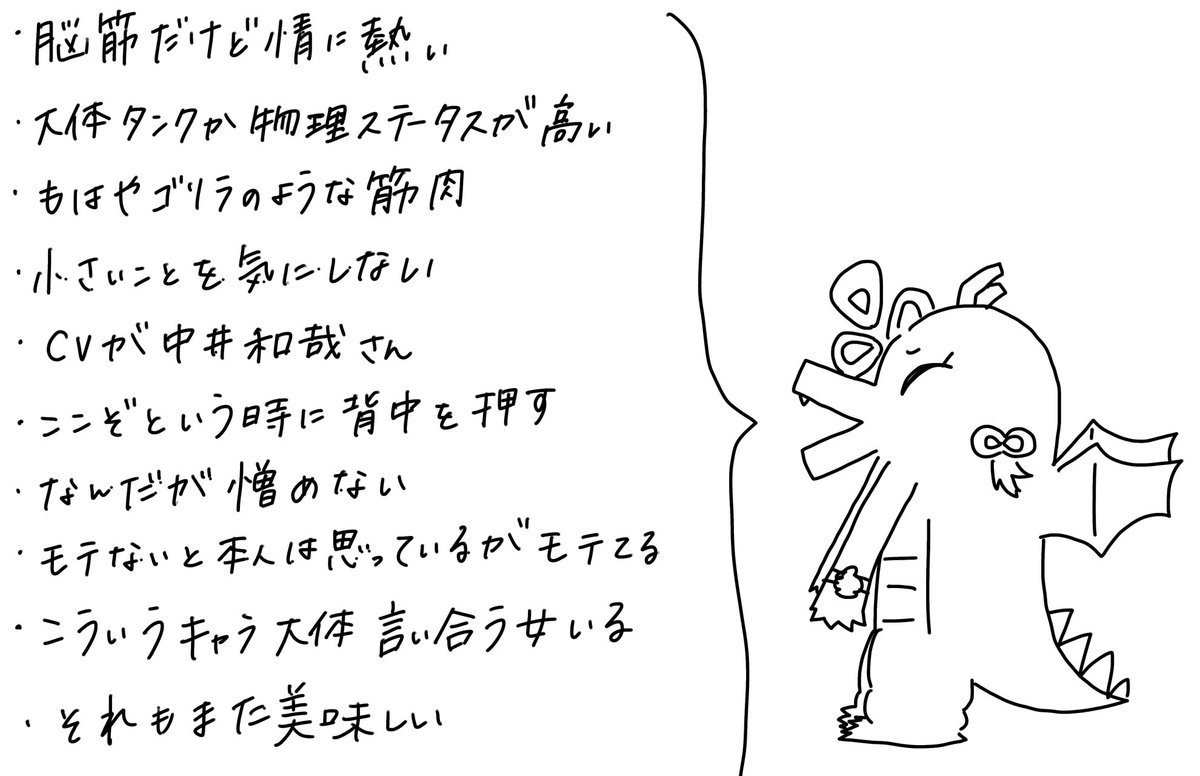 ・脳筋だけど情に熱い
・大体タンクか物理ステータスが高い
・もはやゴリラのような筋肉
・小さいことを気にしない
・CVが中井和哉さん
・ここぞという時に背中を押す
・なんだが憎めない
・モテないと本人は思っているがモテてる
・こういうキャラ大体言い合う女いる
・それもまた美味しい